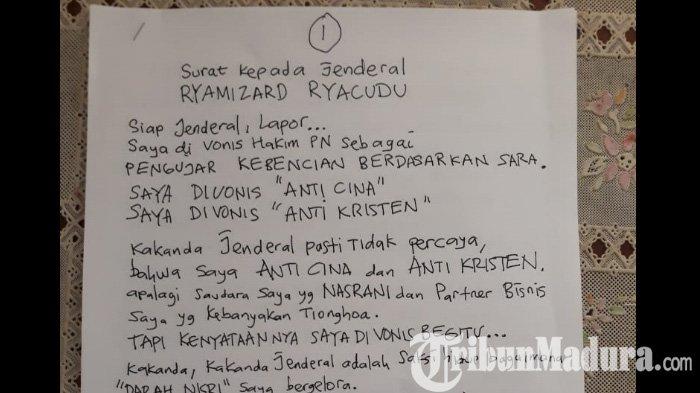 1
Surat Kepada Jenderal
RYAMIZARD RYACUDU
Siap Jenderal, Lapor...
Saya di Vonis Hakim PN Sebagai
PENGUJAR KEBENCIAN BERDASARKAN SARA.
SAYA DIVONIS "ANTI CINA"
SAYA DIVONIS "ANTI KRISTEN"
Kakanda Jenderal pasti Tidak percaya,
bahwa Saya ANTI CINA dan ANTI KRISTEN.
apalagi Saudara Saya yg NASRANI dan Partner Bisnis
Saya yg Kebanyakan Tionghoa.
TAPI KENYATAANNYA SAYA DI VONIS BEGITU...
Kakanda, Kakanda Jenderal adalah Saksi bagaimana
"DARAH NKRI" Saya bergelora.
TribunMadura.com